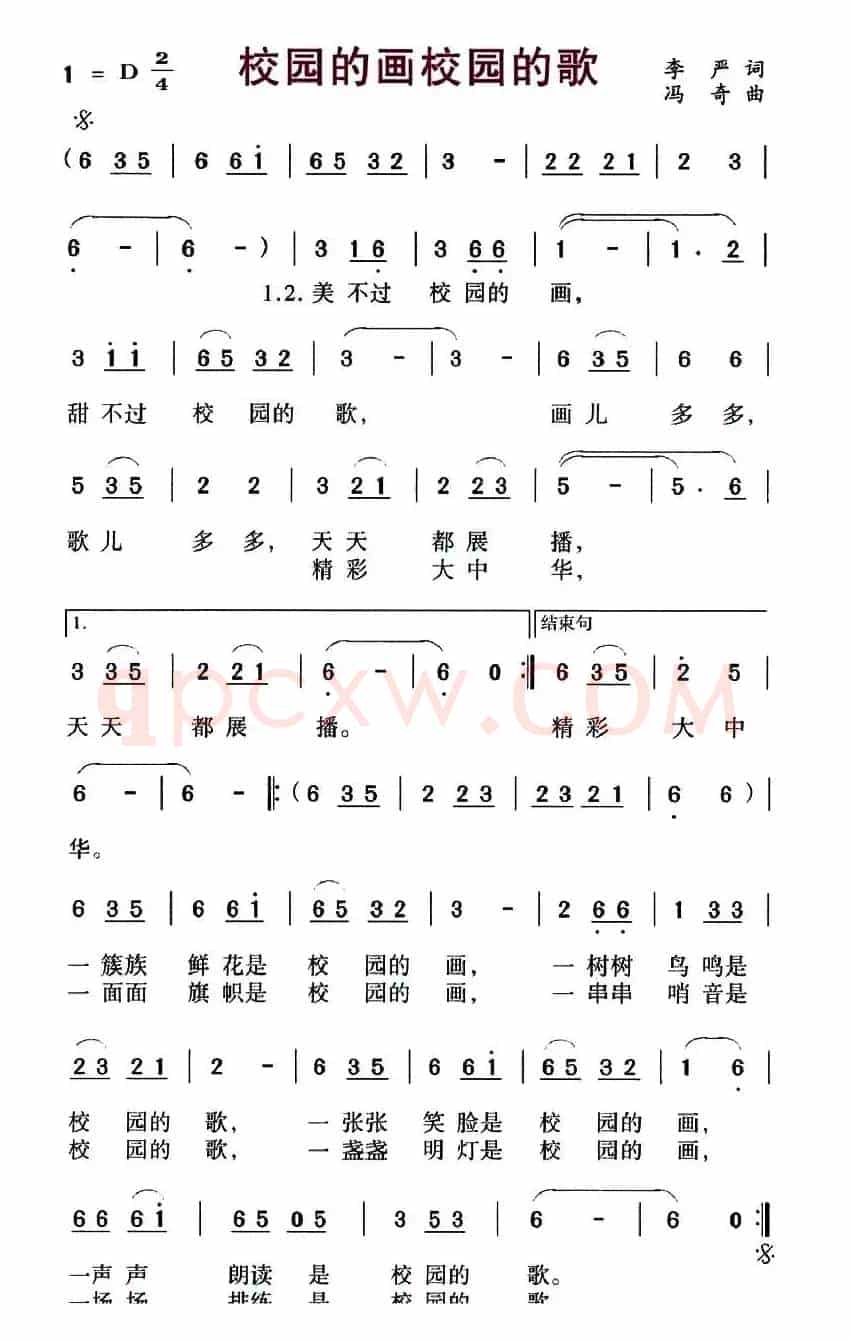 1 = D 2/4 校园的画校园的歌 李 严 词
冯 奇 曲
(6 35 | 6 6i | 65 32 | 3 - | 22 21 | 2 3 |
6 - | 6 -) | 3 16 | 3 66 | 1 - | 1. 2 |
1.2.美 不过 校 园的 画,
3 ii | 65 32 | 3 - | 3 - | 6 35 | 6 6 |
甜 不过 校 园的 歌, 画儿 多 多,
5 35 | 2 2 | 3 21 | 2 23 | 5 - | 5. 6 |
歌儿 多 多, 天天 都展 播,
精彩 大中 华,
1. 结束句
3 35 | 2 21 | 6 - | 6 0 :| 6 35 | 2 5 |
天天 都展 播。 精彩 大 中
qpcxw.COM
6 - | 6 - |: (6 35 | 2 23 | 23 21 | 6 6) |
华。
6 35 | 6 6i | 65 32 | 3 - | 2 66 | 1 33 |
一簇族 鲜花是 校 园的 画, 一树树 鸟鸣是
一面面 旗帜是 校 园的 画, 一串串 哨音是
23 21 | 2 - | 6 35 | 6 6i | 65 32 | 1 6 |
校 园的 歌, 一张张 笑脸是 校 园的 画,
校 园的 歌, 一盏盏 明灯是 校 园的 画,
66 6i | 65 05 | 3 53 | 6 - | 6 0 :|
一声声 朗读 是 校园的 歌。
一场场 排练 是 校园的 歌